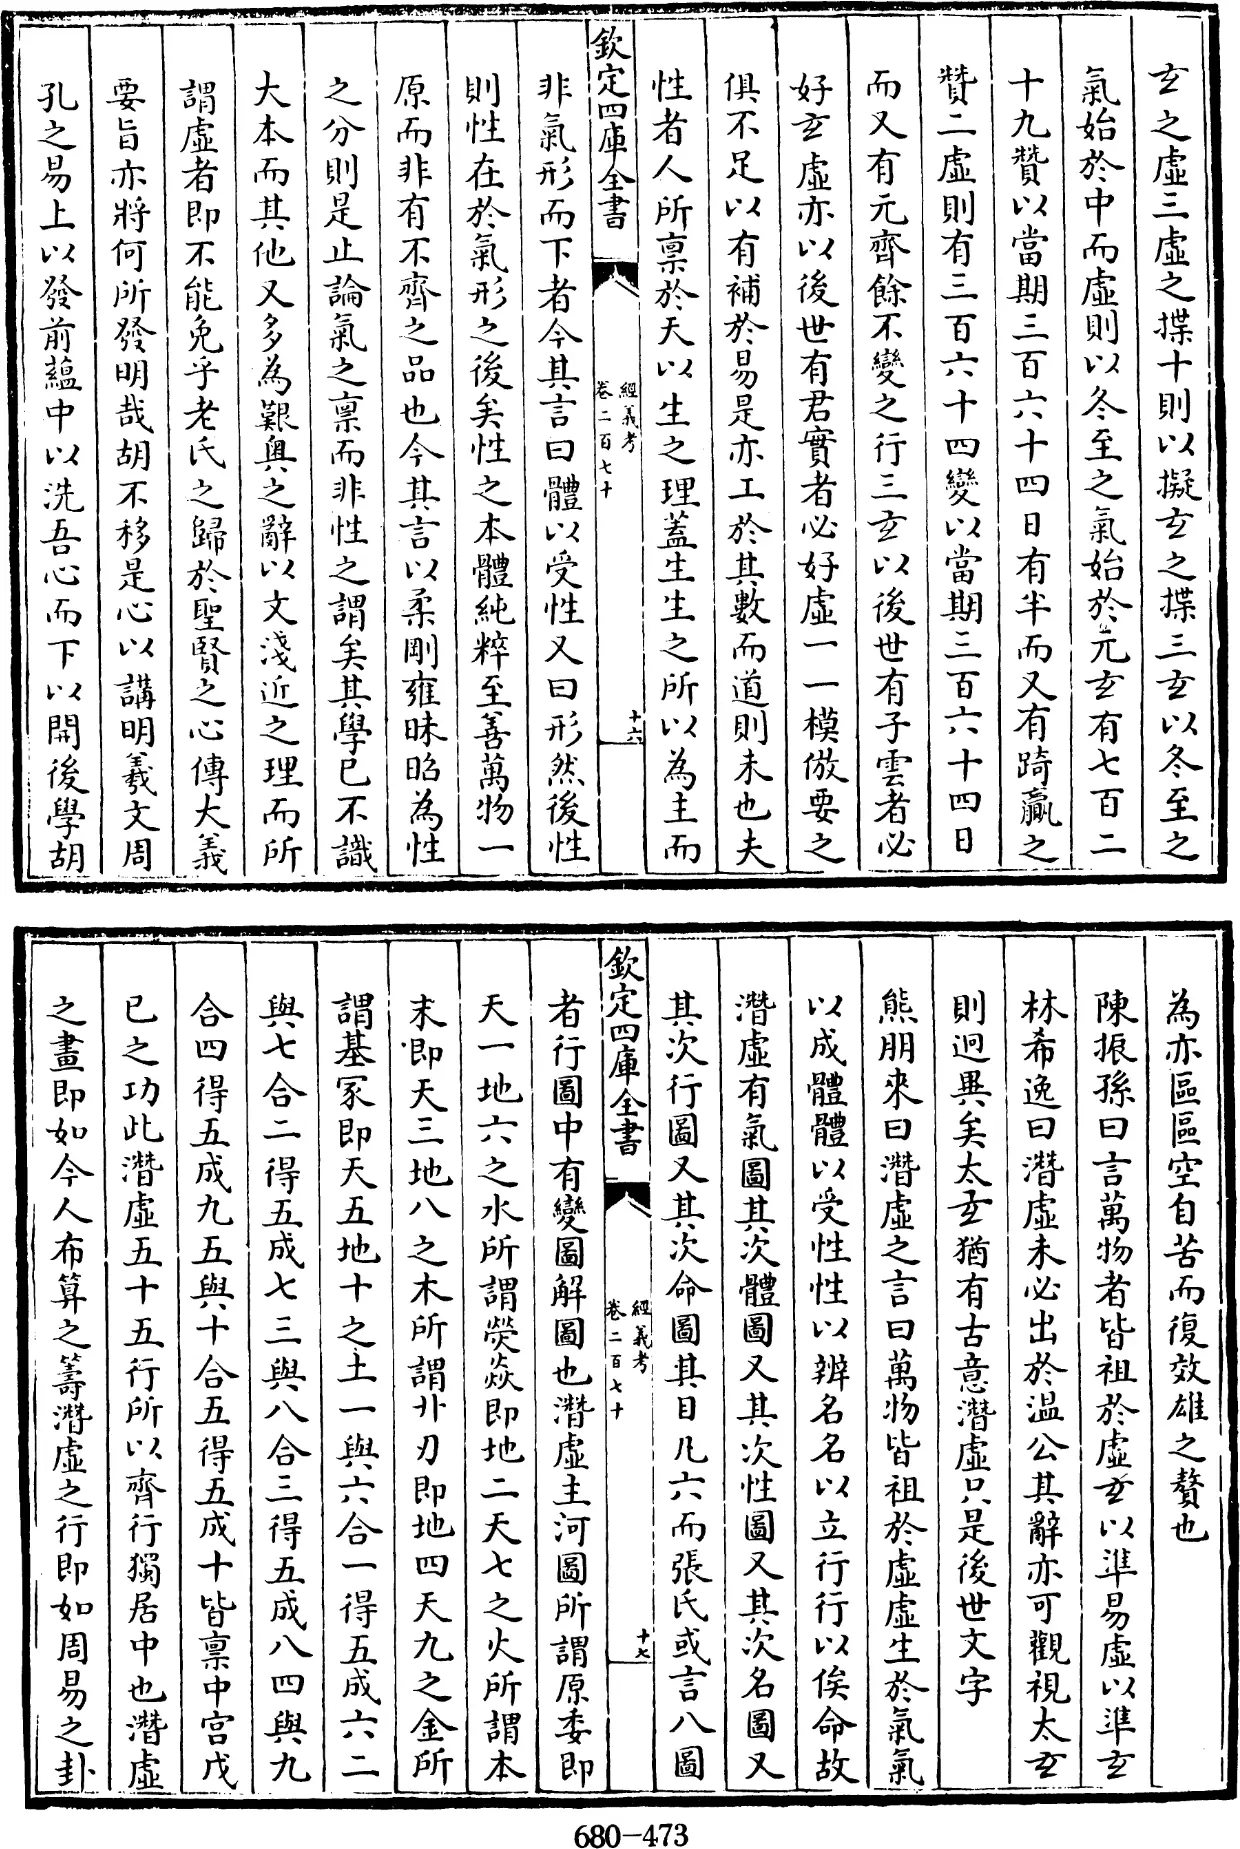 玄之虛三虛之揲十則以擬玄之揲三玄以冬至之
氣始於中而虛則以冬至之氣始於元玄有七百二
十九贊以當期三百六十四日有半而又有踦贏之
贊二虛則有三百六十四變以當期三百六十四日
而又有元齊餘不變之行三玄以後世有子雲者必
好玄虛亦以後世有君實者必好虛一一模倣要之
俱不足以有補於易是亦工於其數而道則未也夫
性者人所禀於天以生之理蓋生生之所以為主而
欽定四庫全書
經義考
卷二百七十
十六
非氣形而下者今其言曰體以受性又曰形然後性
則性在於氣形之後矣性之本體純粹至善萬物一
原而非有不齊之品也今其言以柔剛雍昧昭為性
之分則是止論氣之禀而非性之謂矣其學已不識
大本而其他又多為艱奧之辭以文淺近之理而所
謂虛者即不能免乎老氏之歸於聖賢之心傳大義
要旨亦將何所發明哉胡不移是心以講明羲文周
孔之易上以發前蘊中以洗吾心而下以開後學胡
為亦區區空自苦而復效雄之贅也
陳振孫曰言萬物者皆祖於虛玄以準易虛以準玄
林希逸曰潛虛未必出於温公其辭亦可觀視太玄
則迥異矣太玄猶有古意潛虛只是後世文字
熊朋來曰潛虛之言曰萬物皆祖於虛虛生於氣氣
以成體體以受性性以辨名名以立行行以俟命故
潛虛有氣圖其次體圖又其次性圖又其次名圖又
其次行圖又其次命圖其目凡六而張氏或言八圖
欽定四庫全書
經義考
卷二百七十
十七
者行圖中有變圖解圖也潛虛主河圖所謂原委即
天一地六之水所謂熒焱即地二天七之火所謂本
末即天三地八之木所謂丱刃即地四天九之金所
謂基冢即天五地十之土一與六合一得五成六二
與七合二得五成七三與八合三得五成八四與九
合四得五成九五與十合五得五成十皆禀中宫戊
已之功此潛虛五十五行所以齊行獨居中也潛虛
之畫即如今人布算之籌潛虛之行即如周易之卦
680-473